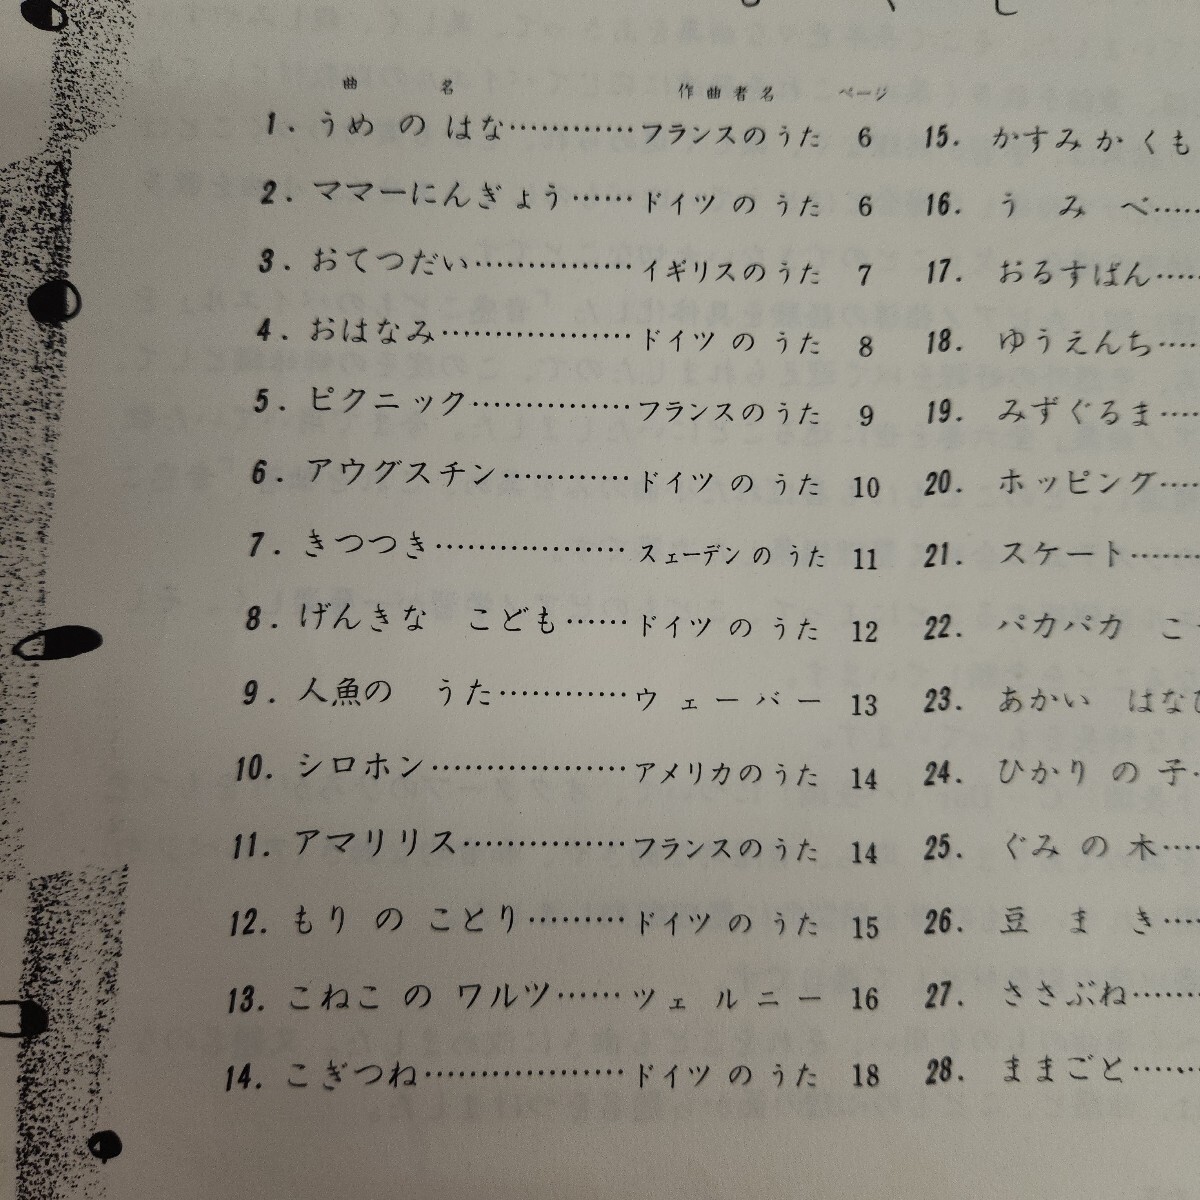 曲 名 作曲者名 ページ
1. うめ の はな………… フランスのうた 6
2. ママーにんぎょう…… ドイツ の うた 6
3. おてつだい…………… イギリスのうた 7
4. おはなみ……………… ドイツ の うた 8
5. ピクニック…………… フランスのうた 9
6. アウグスチン………… ドイツ の うた 10
7. きつつき……………… スェーデン の うた 11
8. げんきな こども…… ドイツ の うた 12
9. 人魚の うた………… ウェーバー 13
10. シロホン……………… アメリカのうた 14
11. アマリリス…………… フランスのうた 14
12. もり の ことり……… ドイツ の うた 15
13. こねこ の ワルツ…… ツェルニー 16
14. こぎつね……………… ドイツ の うた 18
15. かすみ か くも
16. うみべ……
17. おるすばん……
18. ゆうえんち……
19. みずぐるま……
20. ホッピング……
21. スケート……
22. パカパカ こ
23. あかい はな
24. ひかり の 子…
25. ぐみ の 木……
26. 豆まき……
27. ささぶね……
28. ままごと……